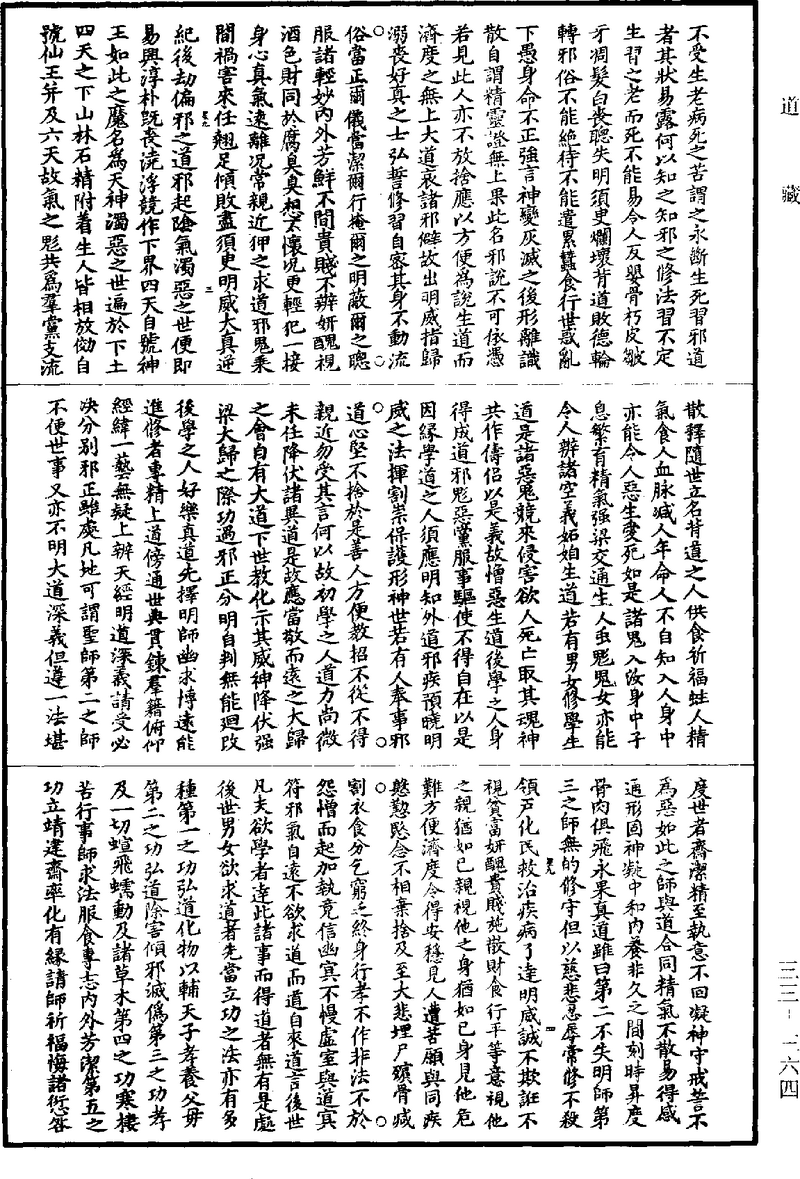 道藏
不受生老病死之苦謂之永斷生死習邪道
者其狀易露何以知之知邪之修法習不定
生習之老而死不能易令人反嬰骨朽皮皺
牙凋髮白喪聰失明須臾爛壞背道敗德輪
轉邪俗不能絶待不能遣累蠶食行世惑亂
下愚身命不正強言神變灰滅之後形離識
散自謂精靈證無上果此名邪說不可依憑
若見此人亦不放捨應以方便為說生道而
濟度之無上大道哀諸邪僻故出明威指歸
溺喪好真之士弘誓修習自容其身不動流
俗當正爾儀當潔爾行掩爾之明蔽爾之聰
服諸輕妙內外芳鮮不間貴賤不辨妍醜視
酒色財同於腐臭臭想不懷况更輕犯一接
身心真氣遠離况常親近狎之求道邪鬼乘
間禍害來任翹足傾敗盡須更明威大真逆
紀後劫偏邪之道邪起陰氣濁惡之世便即
易興淳朴既喪澆浮競作下界四天自號神
王如此之魔名為天神濁惡之世遍於下土
四天之下山林石精附着生人皆相放効自
號仙王并及六天故氣之鬽共為羣黨支流
散釋隨世立名背道之人供食祈福蛀人精
氣食人血脉減人年命人不自知入人身中
亦能令人惡生愛死如是諸鬼入汝身中子
息繁育精氣强梁交通生人虫鬽鬼女亦能
令人辨諸空義妬始生道若有男女修學生
道是諸惡鬼競來侵害欲人死亡取其魂神
共作儔侣以是義故憎惡生道後學之人身
得成道邪鬽惡黨服事驅使不得自在以是
因緣學道之人須應明知外道邪疾預曉明
威之法揮割祟保護形神世若有人奉事邪
道心堅不捨於是善人方便教招不從不得
親近勿受其言何以故初學之人道力尚微
未任降伏諸異道是故應當敬而遠之大歸
之會自有大道下世教化示其威神降伏强
梁大歸之際功過邪正分明自判無能迴改
後學之人好樂真道先擇明師幽求博遠能
進修者專精上道傍通世典貫鍊羣籍俯仰
經緯一藝無疑上辨天經明道深義請受必
决分別邪正雖處凡地可謂聖師第二之師
不便世事又亦不明大道深義但遵一法堪
度世者齋潔精至執意不回凝神守戒誓不
為惡如此之師與道合同精氣不散易得感
通形固神凝中和內養非久之間刻時昇度
骨肉俱飛永果真道雖曰第二不失明師第
三之師無的修守但以慈悲忍辱常修不殺
領户化民救治疾病了達明威誠不欺誑不
視貧富妍醜貴賤施散財食行平等意視他
之親猶如己親視他之身猶如己身見他危
難方便濟度令得安穩見人遭苦願與同疾
慇懃愍念不相棄捨及至大悲埋尸殯骨減
割衣食分乞窮乏終身行孝不作非法不於
怨憎而起加執竟信幽冥不慢虛室與道冥
符邪氣自遠不欲求道而道自來道言後世
凡夫欲學者達此諸事而得道者無有是處
後世男女欲求道者先當立功之法亦有多
種第一之功弘道化物以輔天子孝養父母
第二之功弘道除害傾邪滅偽第三之功孝
及一切蝖飛蠕動及諸草木第四之功寒棲
苦行事師求法服食專志內外芳潔第五之
功立靖建齋率化有緣請師祈福悔諸愆咎
三三-二六四